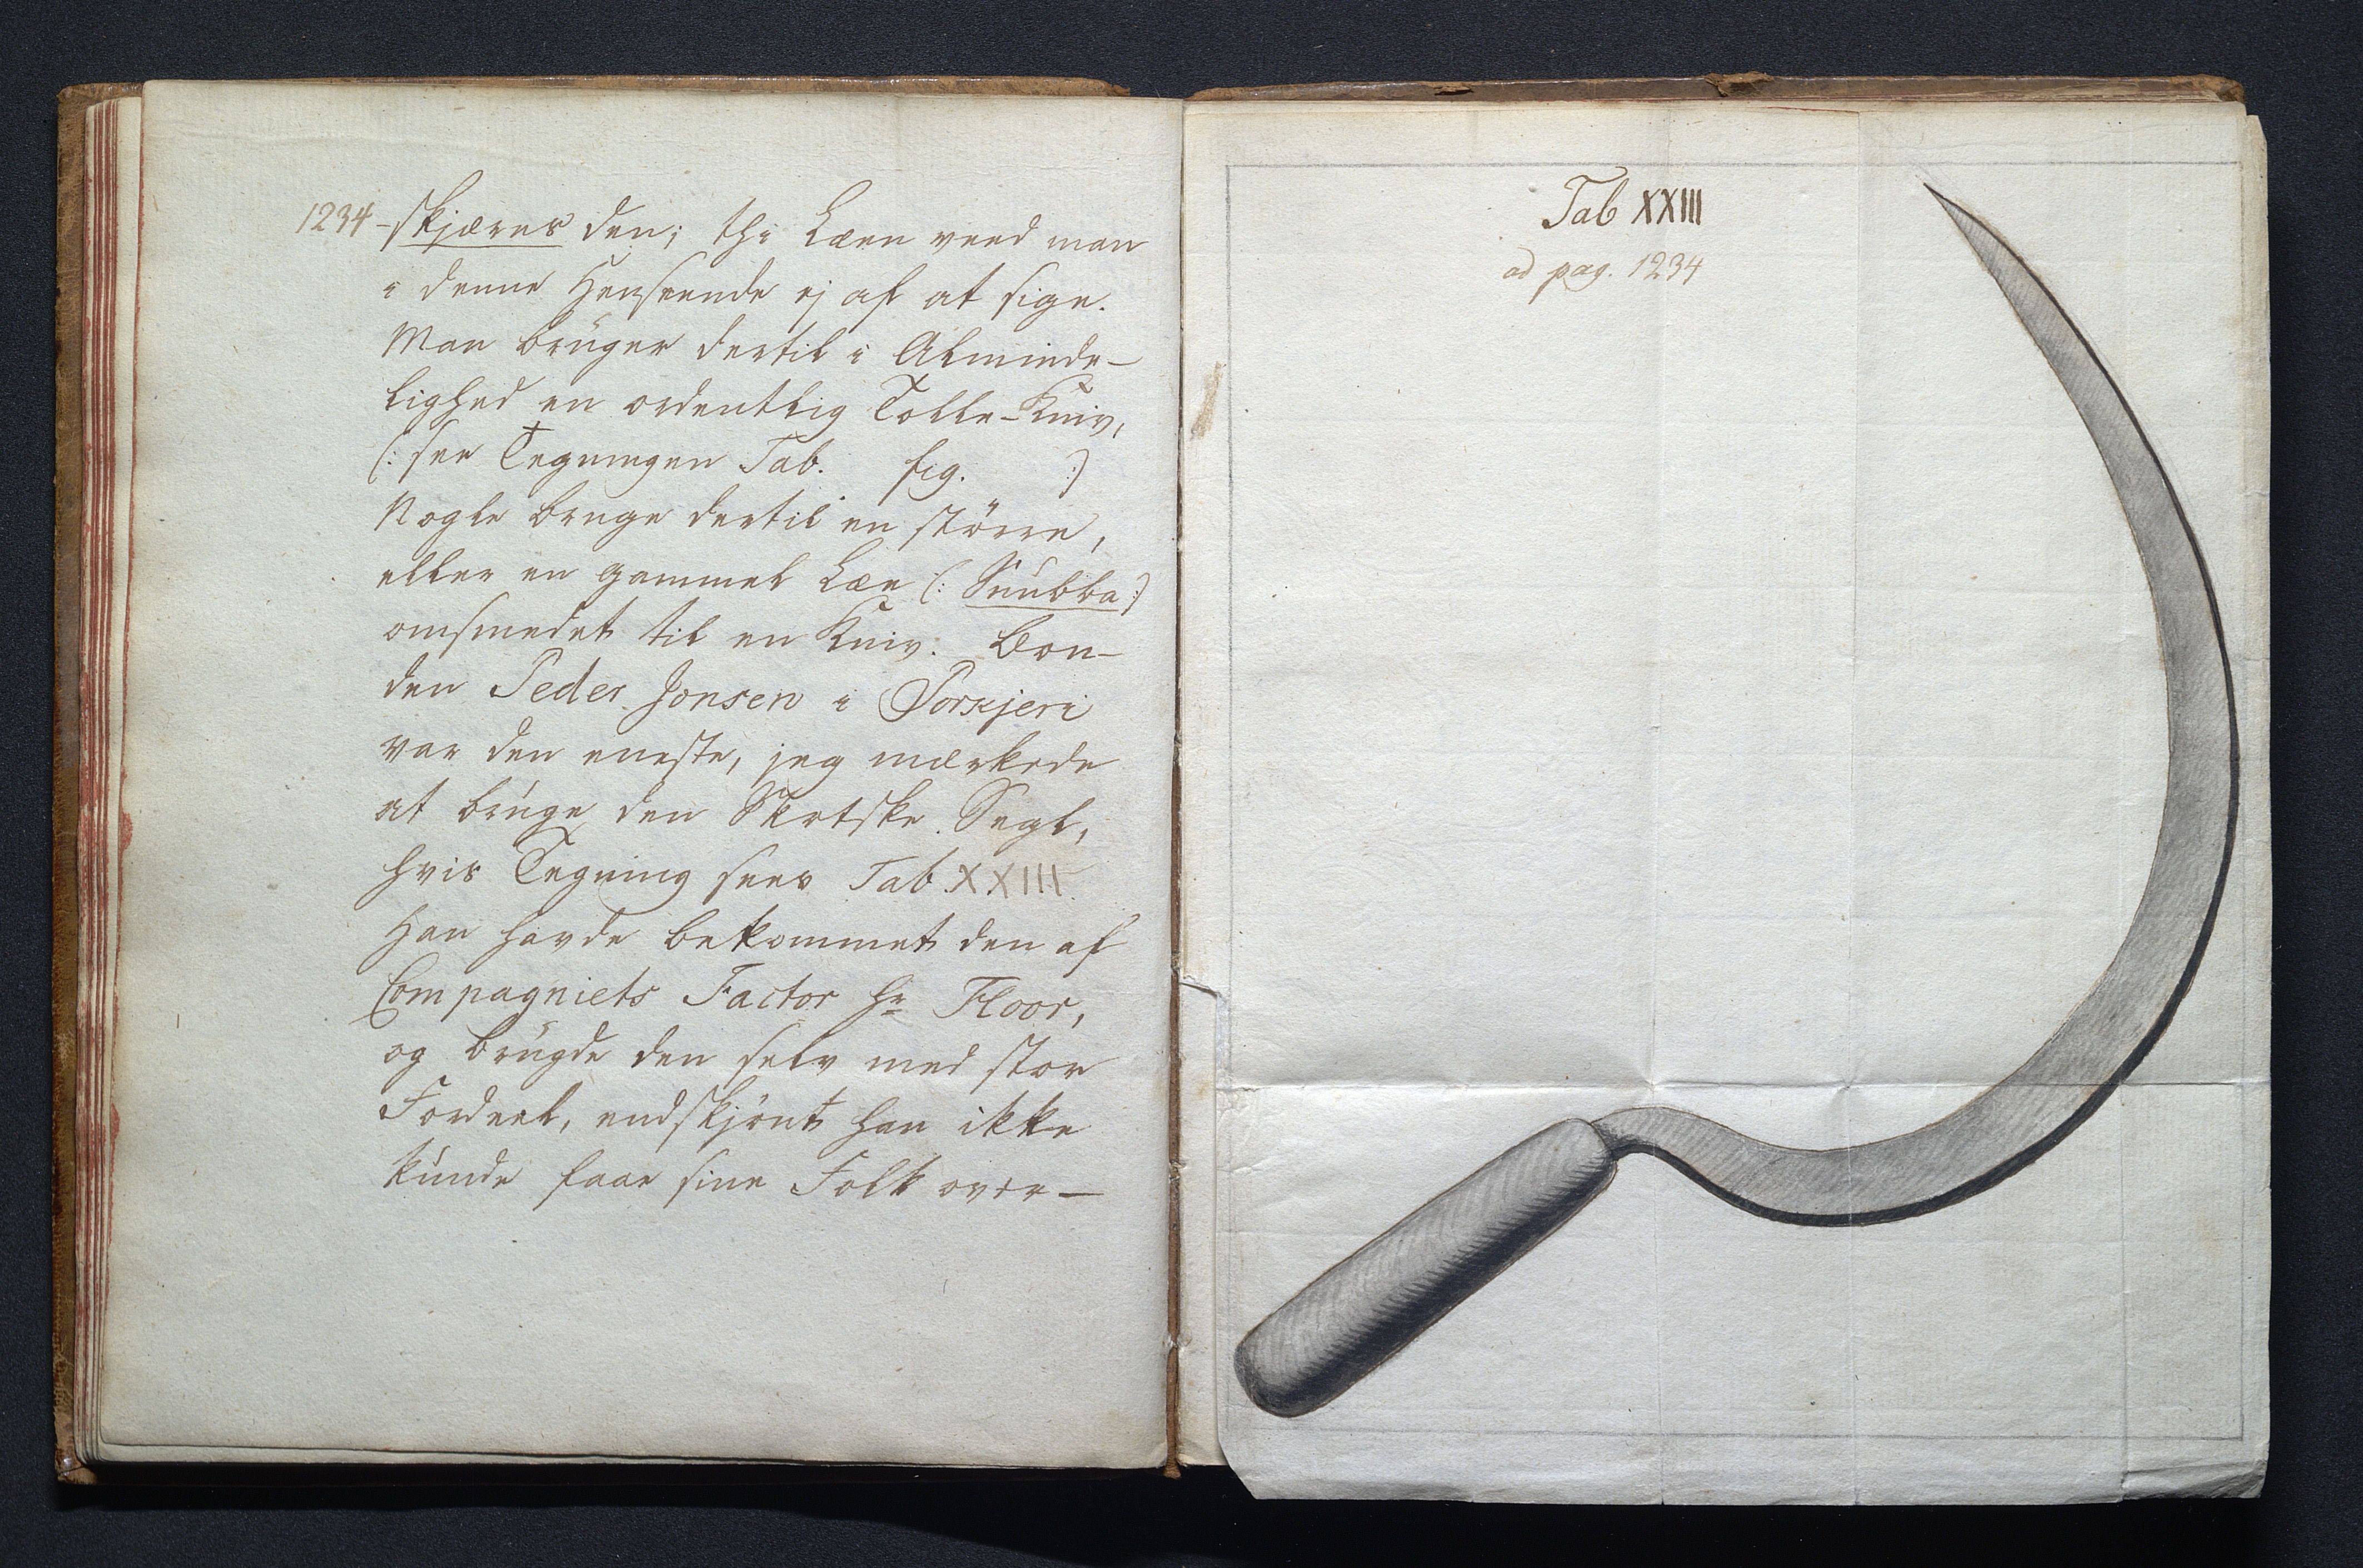 1234 - skjæres den; thi Læen veed man
i denne Henseende ej af at sige.
Man bruger dertil i Alminde-
lighed en ordentlig Tolle-Kniv,
(: see Tegningen Tab. fig. :)
Nogle bruge dertil en større,
eller en gammel Læe (: Snubba :)
omsmedet til en Kniv. Bon-
den Peder Jonsen i Porkjeri
var den eneste, jeg mærkede
at bruge den Skotske Segl,
hvis Tegning sees Tab XXIII.
Han havde bekommet den af
Compagniets Factor Hr Floor,
og brugde den selv med stor
Fordeel, endskjönt han ikke
kunde faae sine Folk over-
Tab XXIII
ad pag. 1234